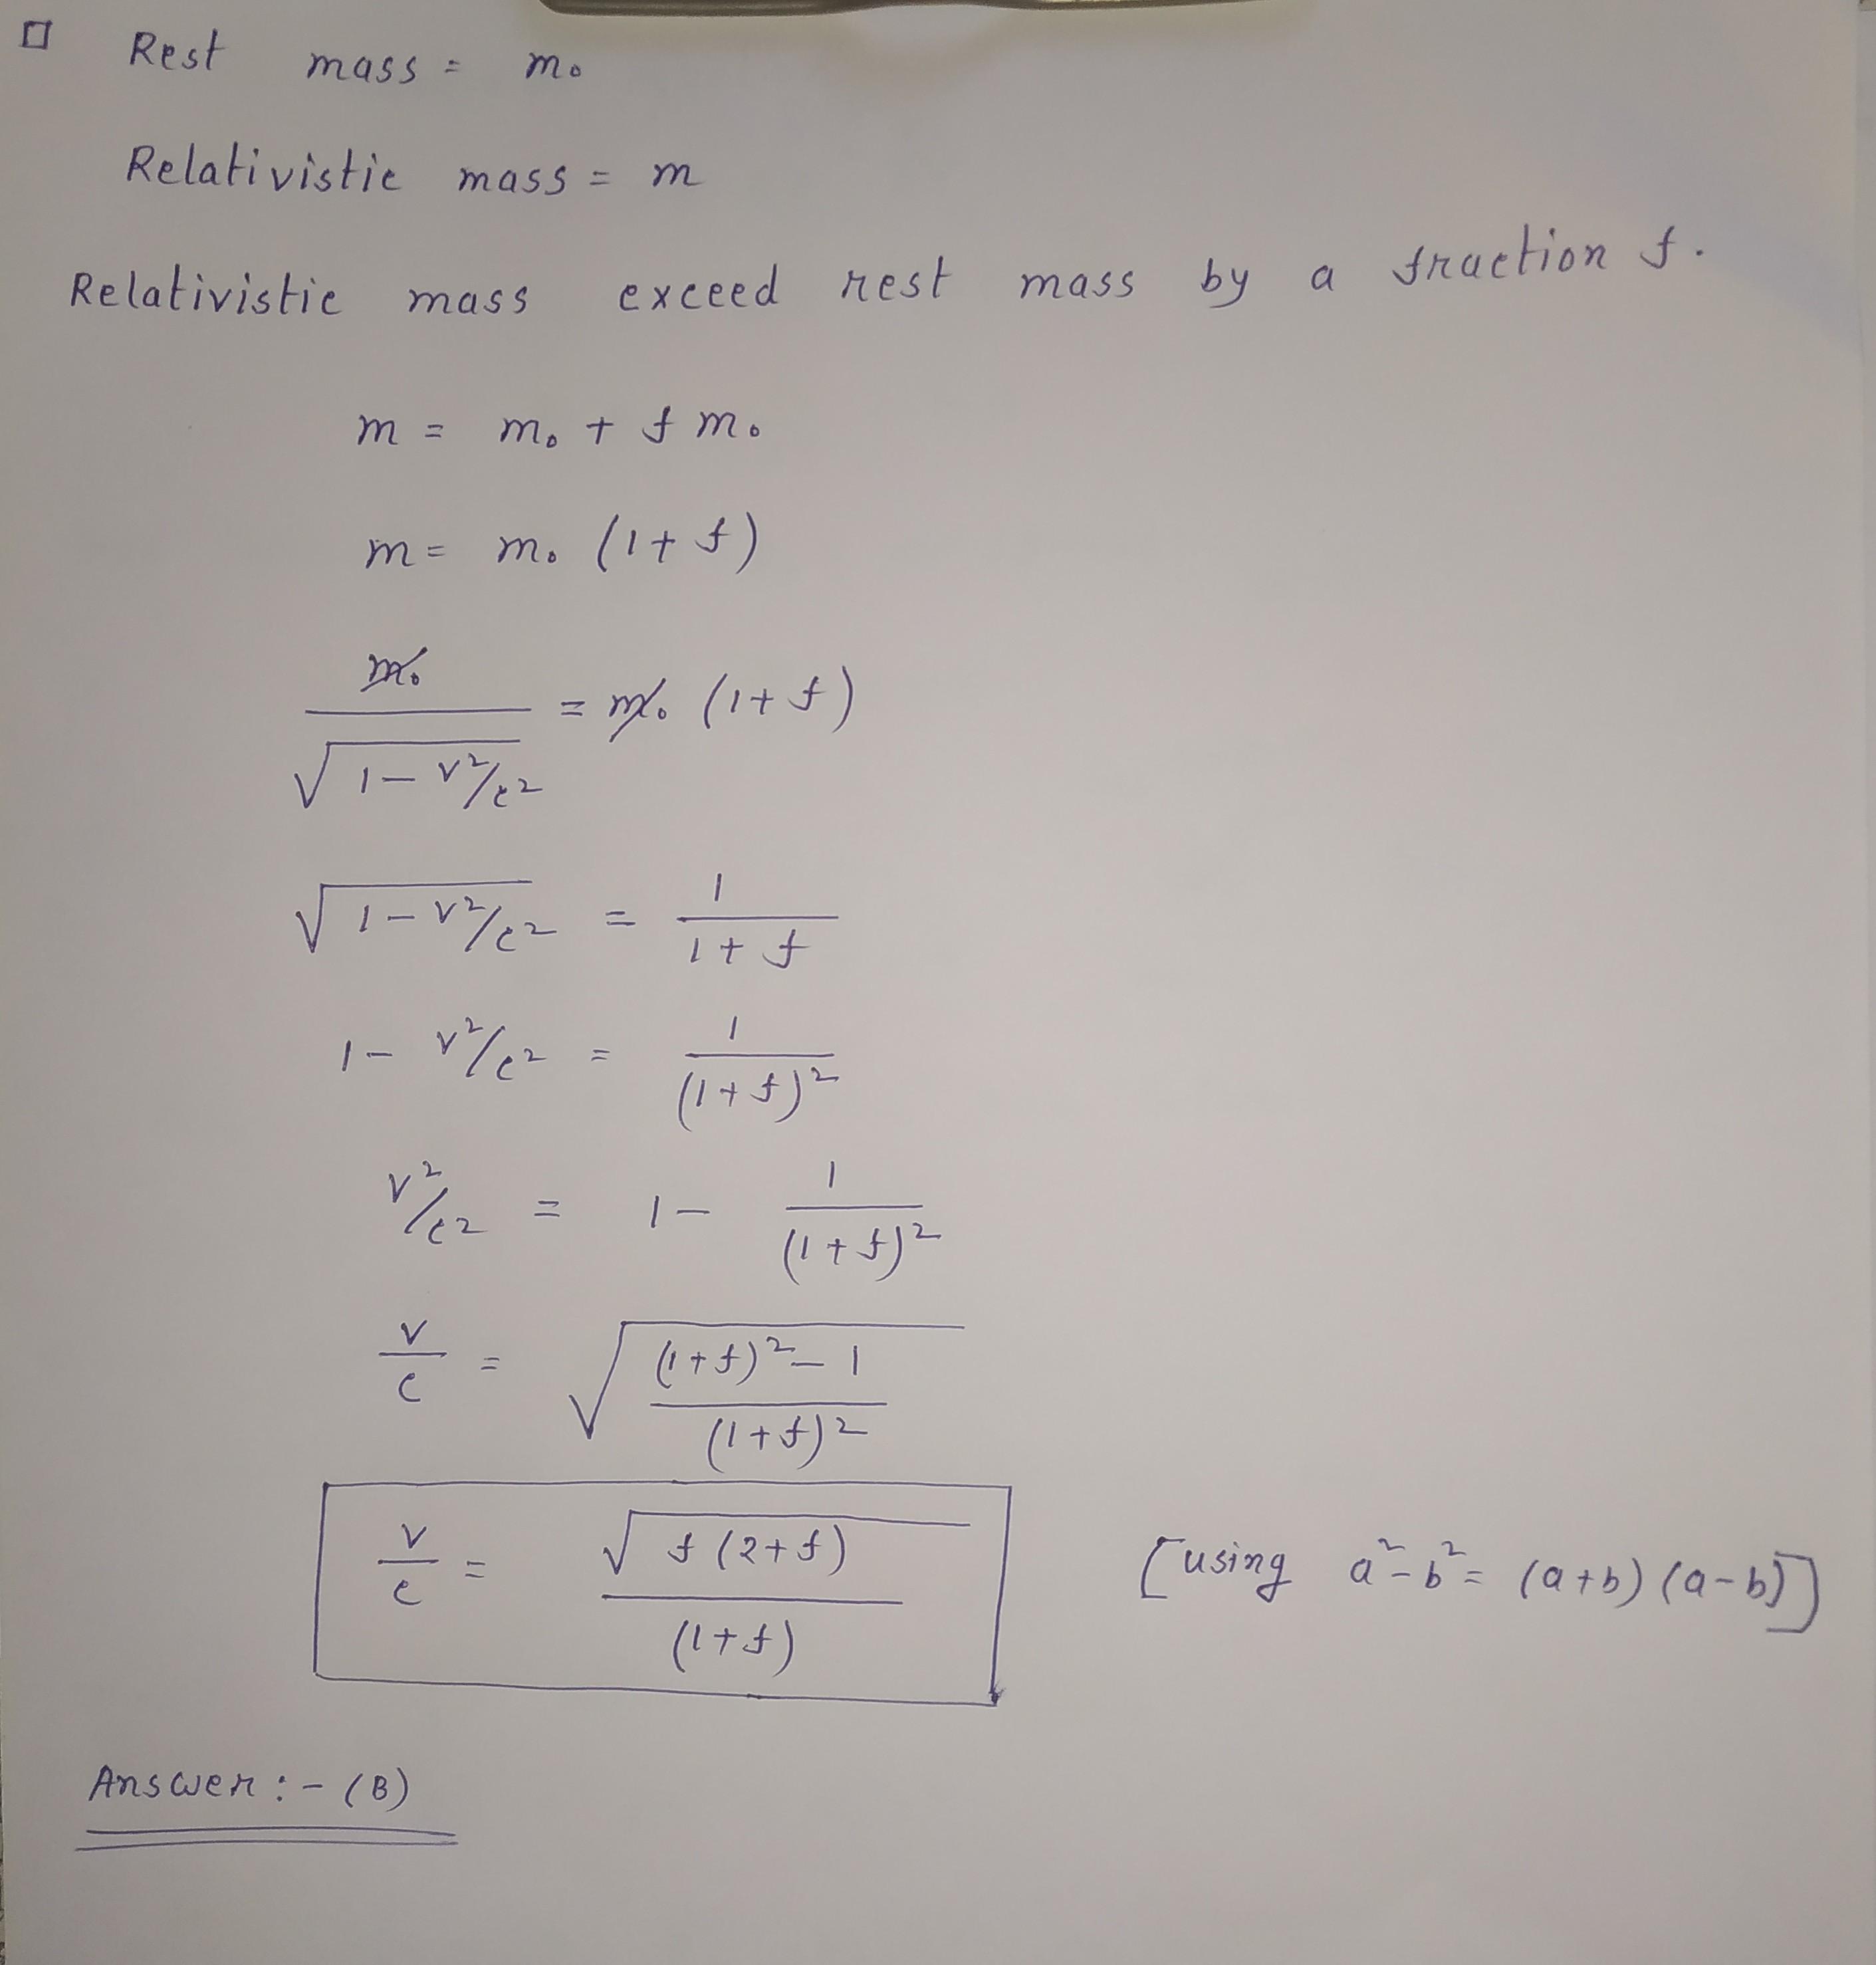 Rest mass = m₀
Relativistic mass = m
Relativistic mass exceed rest mass by a fraction f.
m = m₀ + f m₀
m = m₀ (1 + f)
m₀ / √(1 − v²/c²) = m₀ (1 + f)
√(1 − v²/c²) = 1 / (1 + f)
1 − v²/c² = 1 / (1 + f)²
v²/c² = 1 − 1 / (1 + f)²
v/c = √(((1 + f)² − 1) / (1 + f)²)
v/c = √(f (2 + f)) / (1 + f) [using a² − b² = (a + b) (a − b)]
Answer : − (B)